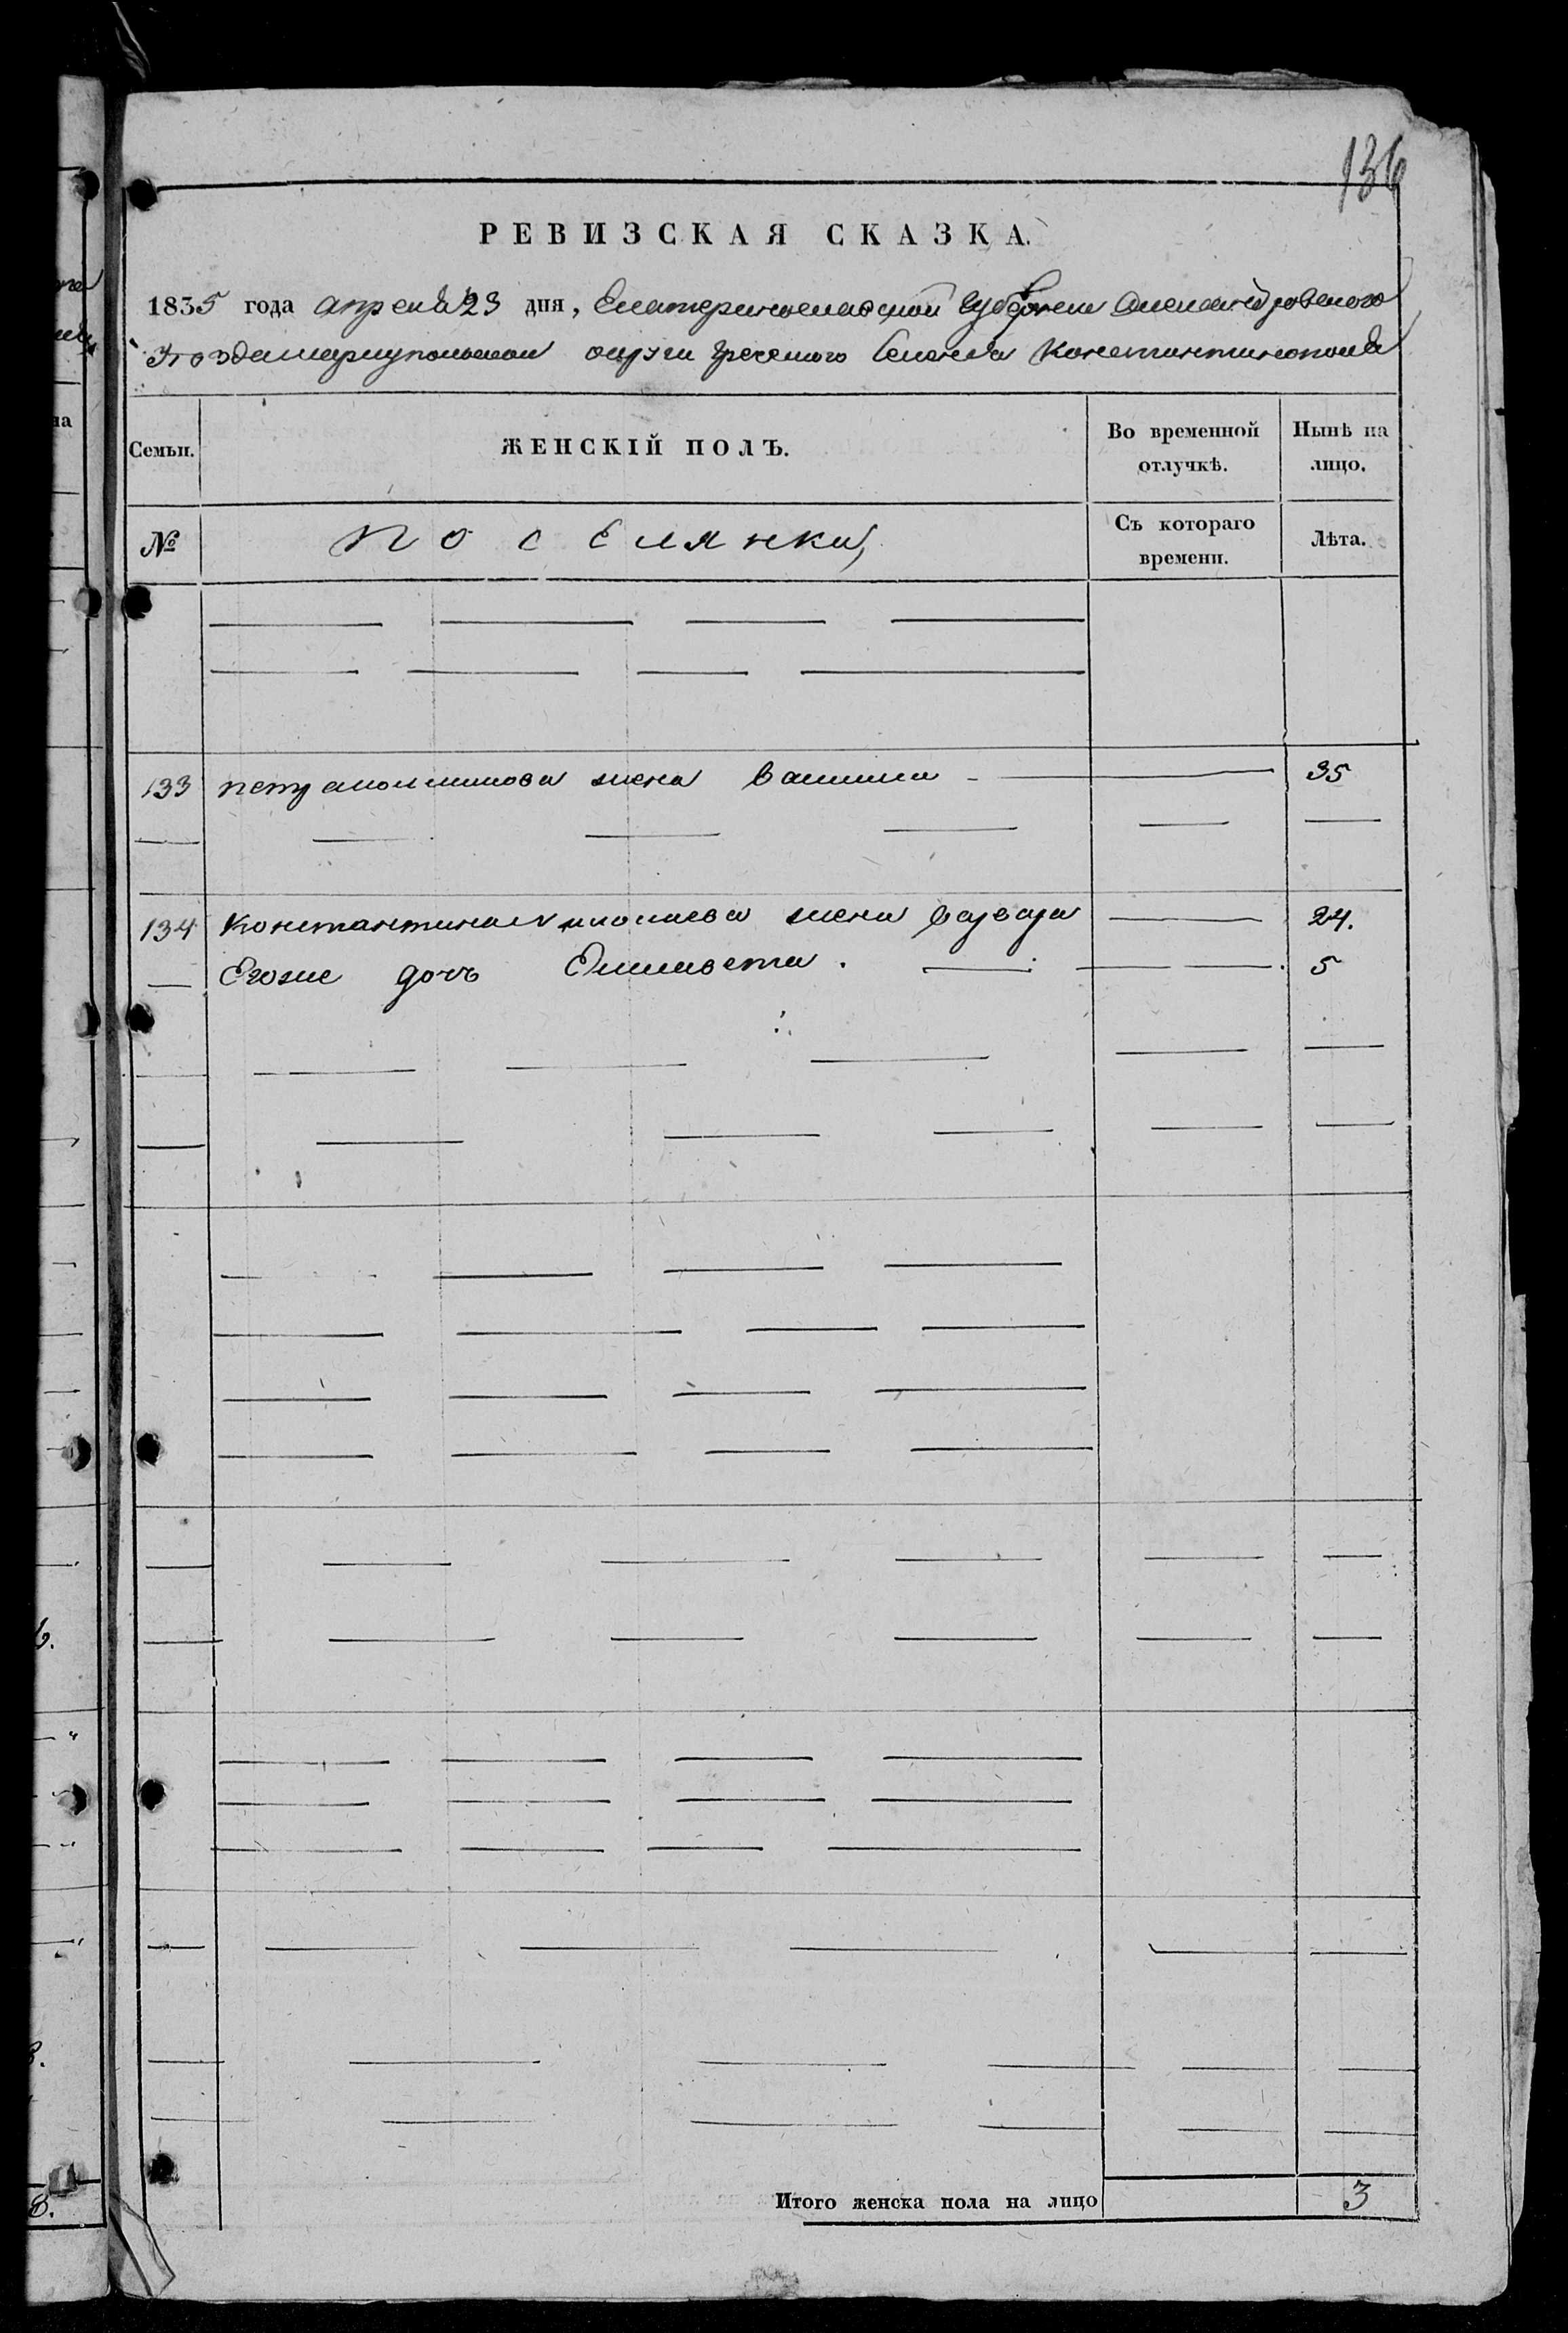 136
РЕВИЗСКАЯ СКАЗКА.
1835 года апреля 23 дня, Екатеринославской губернии Александровского
Уезда мариупольской округи греческого Селения Константинополя
Семьи.
ЖЕНСКІЙ ПОЛЪ.
Во временной отлучкѣ.
Нынѣ на лицо.
№
поселянки,
Съ котораго времени.
Лѣта.
133 жена 35
134 Константина николаева жена варвара 24.
Егоже дочь Елисавета. 5
Итого женска пола на лицо 3